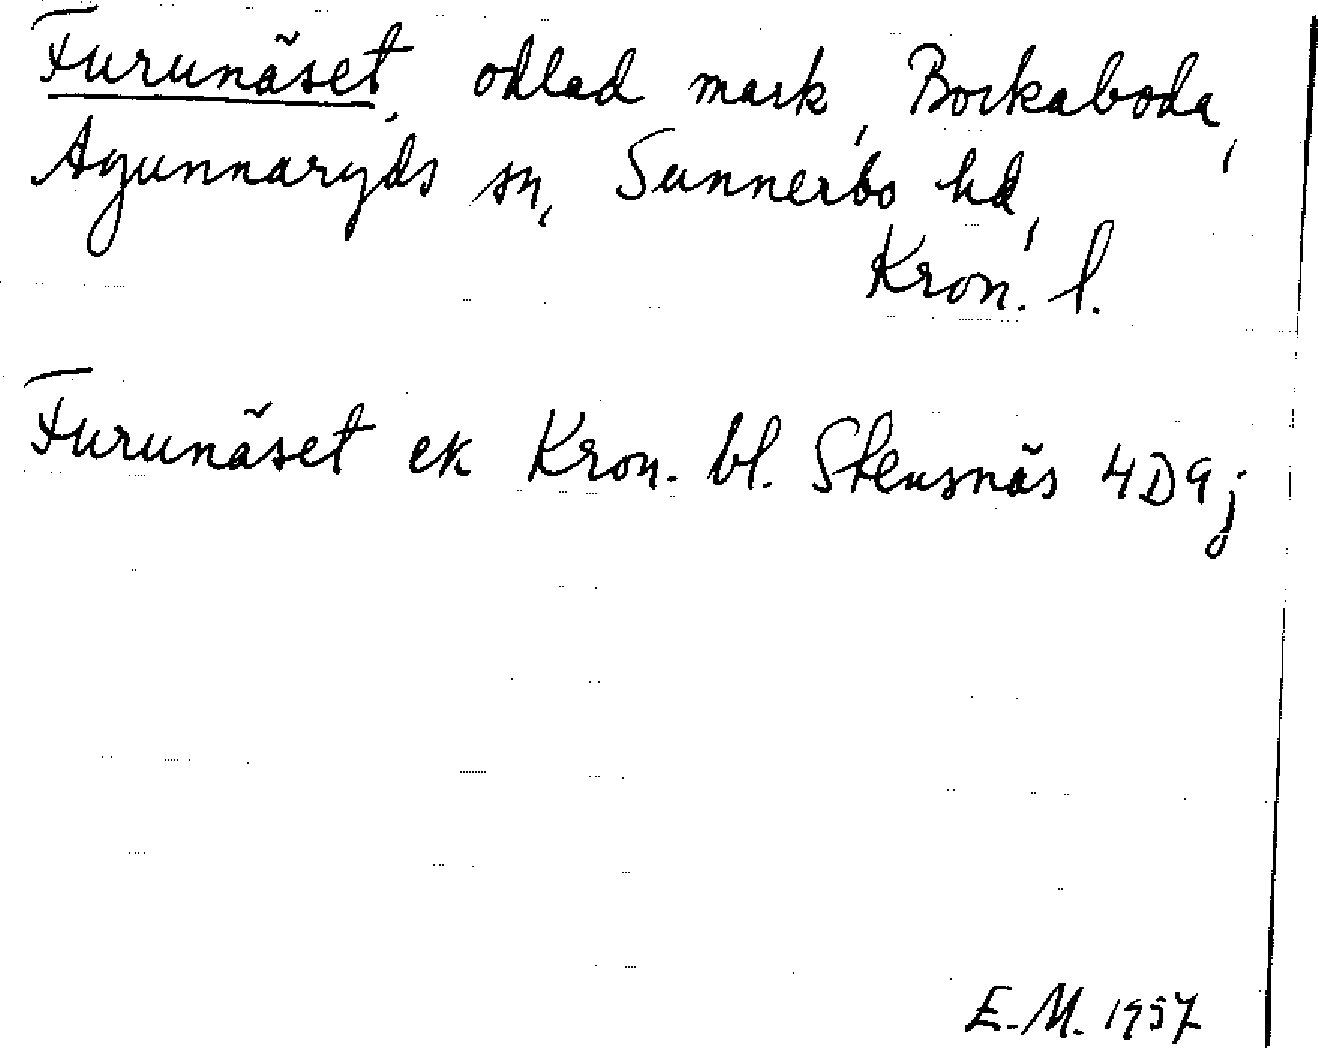 Furunäset, odlad mark, Bockaboda,
Agunnaryds sn, Sunnerbo hd,
Kron. l.
Furunäset ek Kron. bl. Stensnäs 4D9j
E.M. 1957